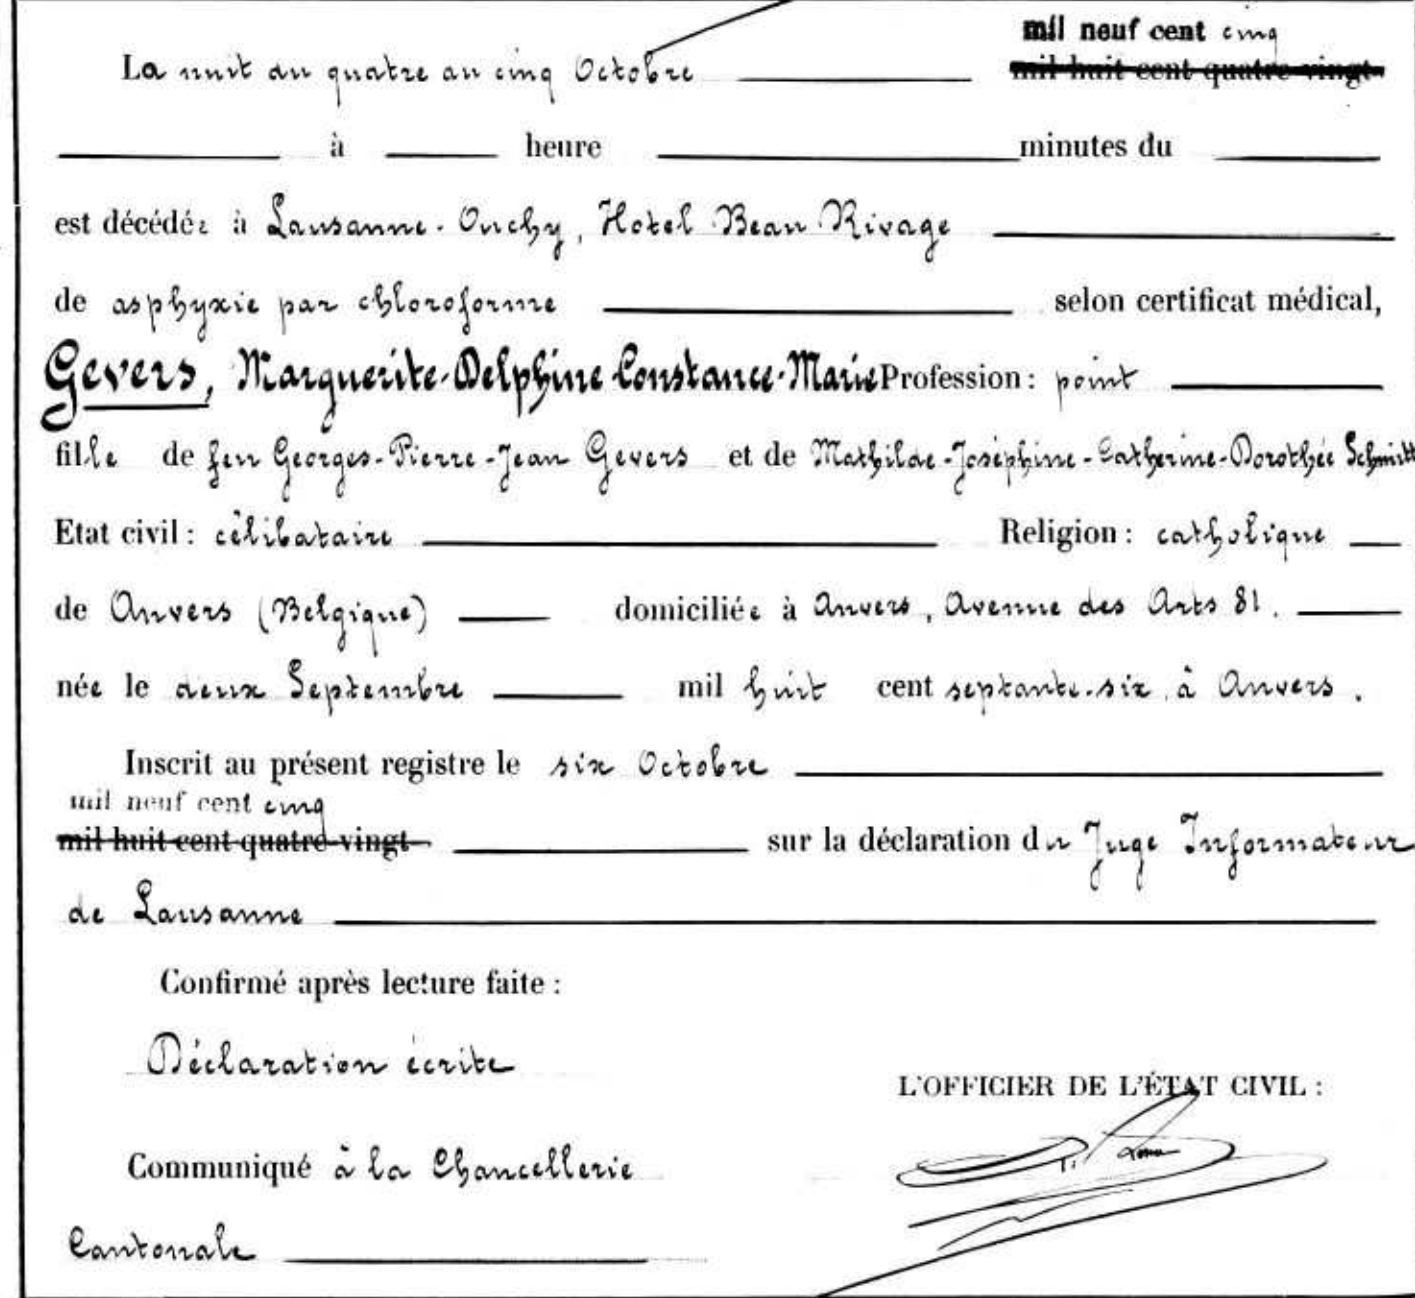 mil neuf cent cinq
La nuit du quatre au cinq Octobre mil huit cent quatre-vingt-
à heure minutes du
est décédée à Lausanne-Ouchy, Hotel Beau Rivage
de asphyxie par chloroforme selon certificat médical,
Gevers, Marguerite-Delphine Constance-Marie Profession : point
fille de feu Georges-Pierre-Jean Gevers et de Mathilde-Joséphine-Catherine-Dorothée Schmitt
Etat civil : célibataire Religion : catholique
de Anvers (Belgique) domiciliée à Anvers, Avenue des Arts 81.
née le deux Septembre mil huit cent septante-six à Anvers.
Inscrit au présent registre le six Octobre
mil neuf cent cinq
mil huit cent quatre-vingt- sur la déclaration du Juge Informateur
de Lausanne
Confirmé après lecture faite :
Déclaration écrite
L'OFFICIER DE L'ÉTAT CIVIL :
Communiqué à la Chancellerie
Cantonale